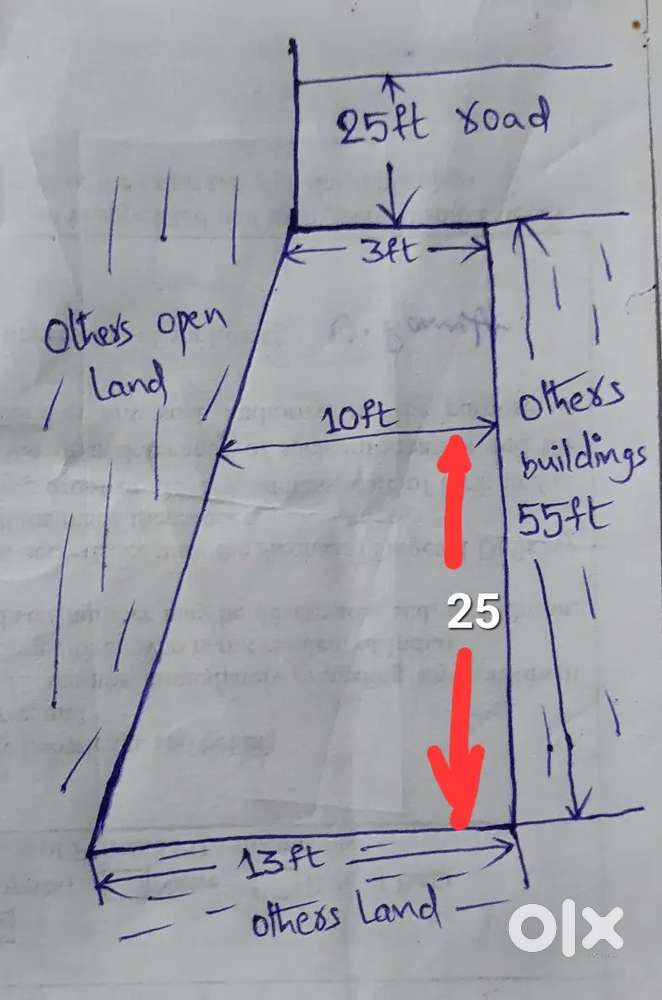 25ft road
3ft
Others open
Land
10ft
Others
buildings
55ft
25
13ft
Others Land
olx